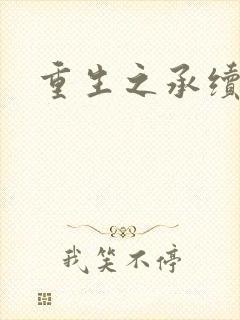 重生之承续
我笑不停